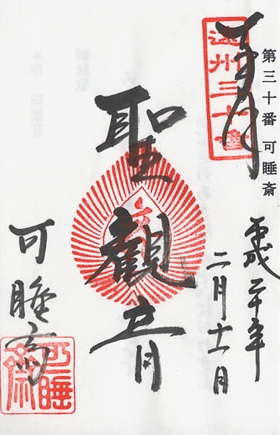 第三十番 可睡斎
奉拝
平成二十年
二月十一日
聖観音
可睡斎
可睡斎